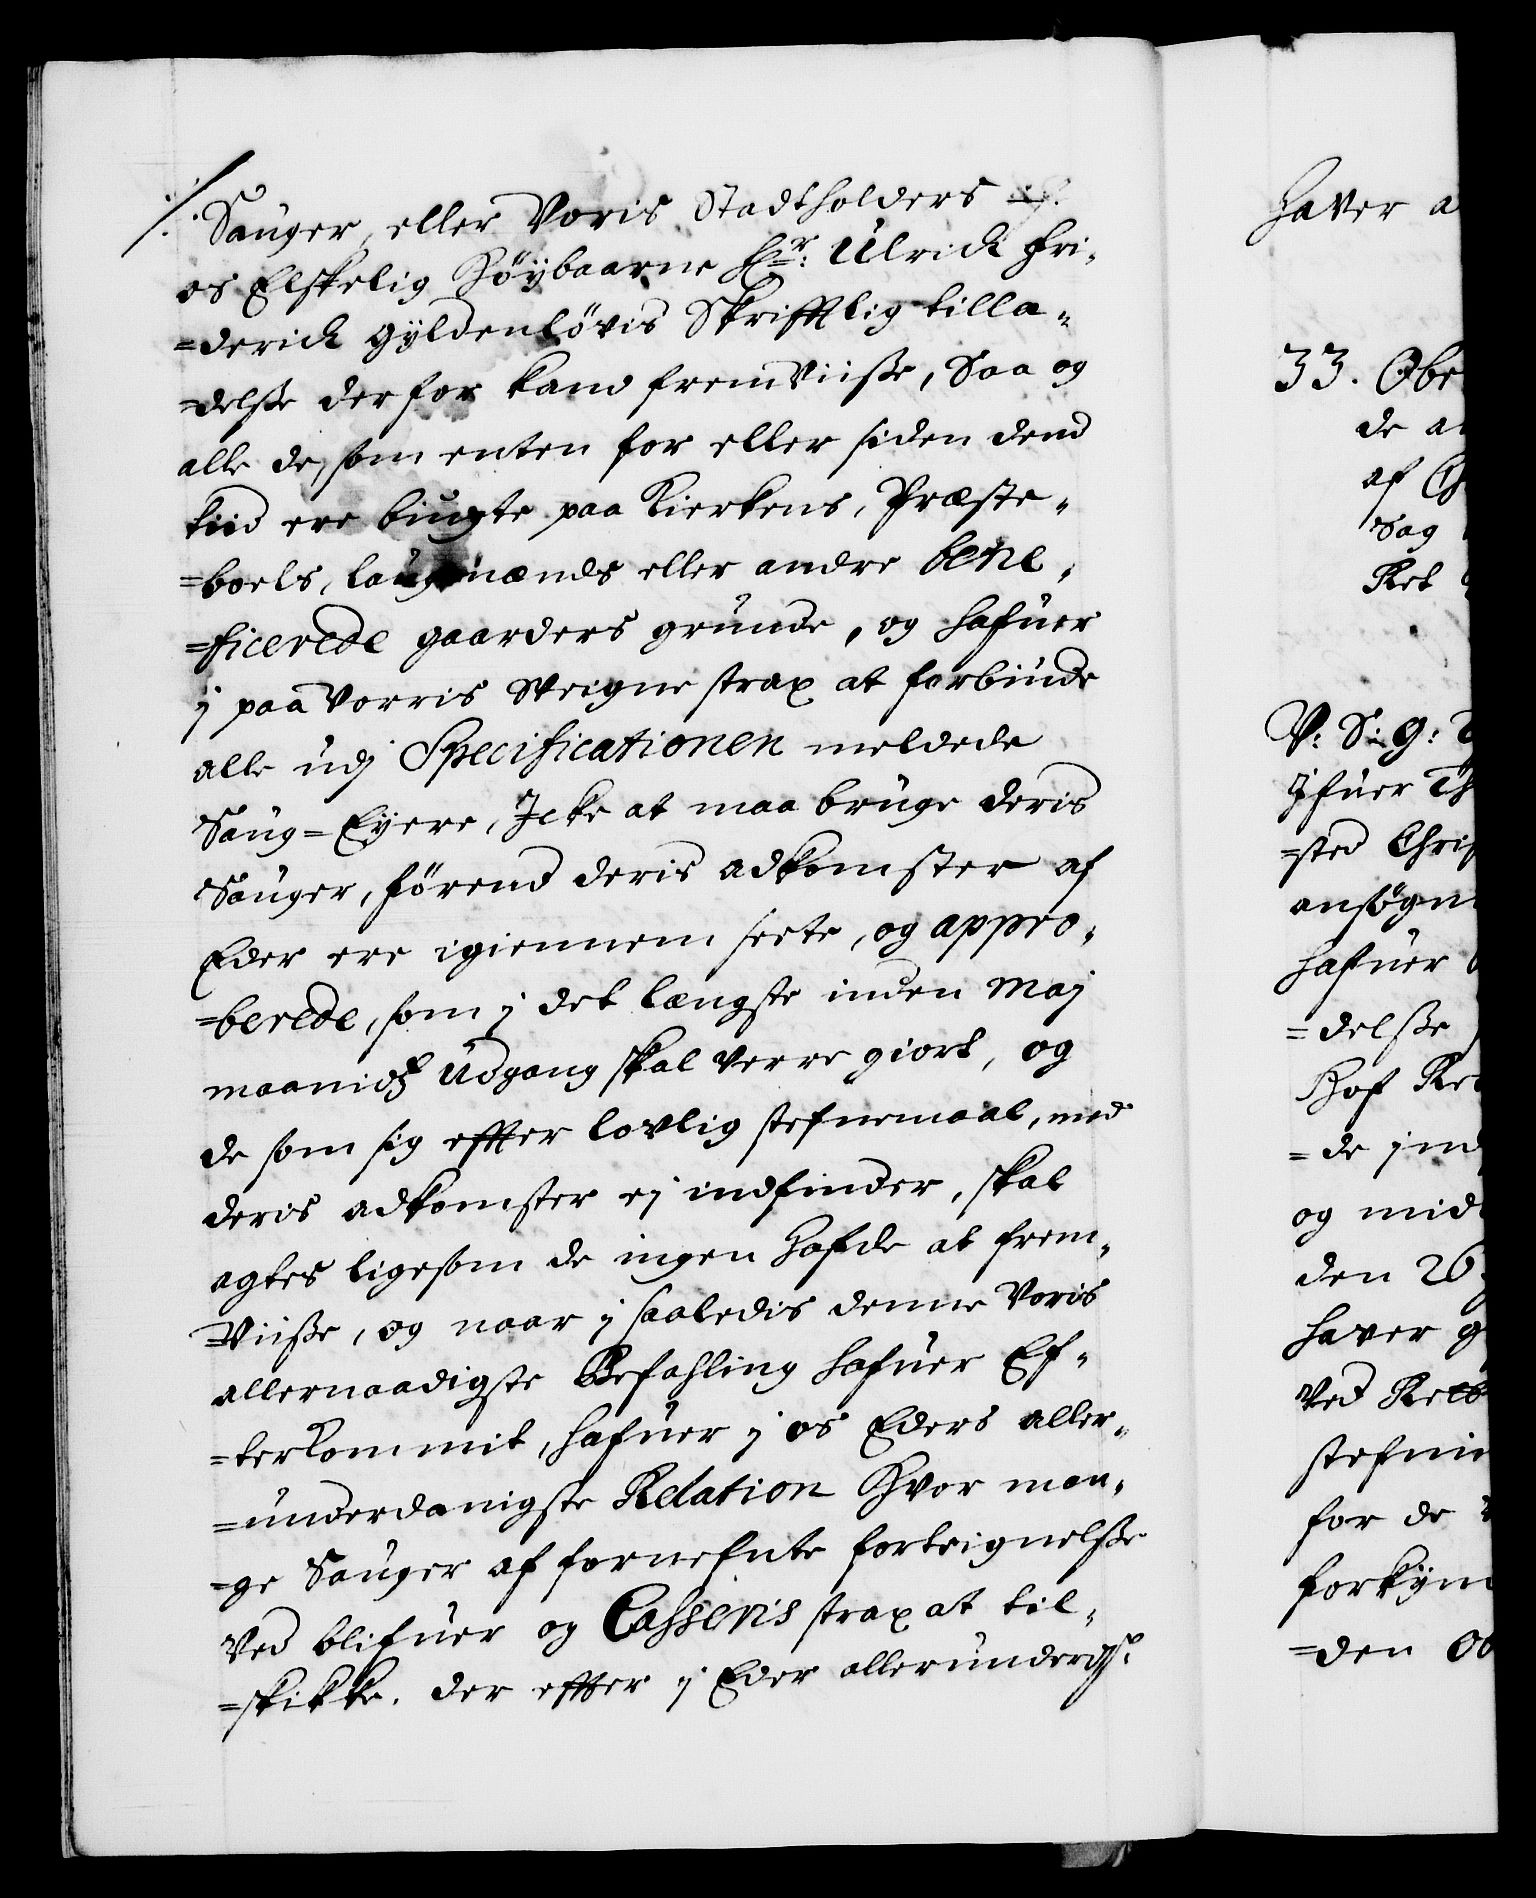 Sauger, eller Voris Stadtholders
os Elskelig Høybaarne Hr: Ulrick Fri-
=derick Gyldenløvis Skrifftlig tilla-
=delsse derfor kand fremviisse, Saa og
alle de, som enten for eller siden dend
tiid ere biugte paa Kierkens, Præste-
=boels, laugmænds eller andre bene-
=ficerede gaarders grunde, og hafuer
j paa Vorris Veigne strax at forbiude
alle udj Specificationen meldede
Saug=Eyere, Icke at maa bruge deris
Sauger, førend deris adkomster af
Eder ere igiennem seete, og appro-
=berede, som j det længste inden Maj
maanidz Udgang skal verre giort, og
de som sig effter lovlig stefnemaal, med
deris adkomster ej indfinder, skal
agtes ligesom de ingen hafde at frem-
=Viisse, og naar j saaledis denne Voris
allernaadigste Befahling hafuer Ef-
=terkommit, hafuer j os Eders aller-
=underdanigste Relation Hvor man-
=ge Sauger af fornefnte forteignelsse
Ved blifuer og Casseris strax at til-
=skikke. der effter j Eder allerunderdgst.
haver a
33. Obe
de a
af Ch
Sag
Ret
V: S: G: T
Ifuer Th
=sted Chris
ansøgn
hafuer
=delsse
Hof Ret
=de ind
og mid
den 26
haver g
Ved Rett
stefni
for de
forkyn
=den Ob